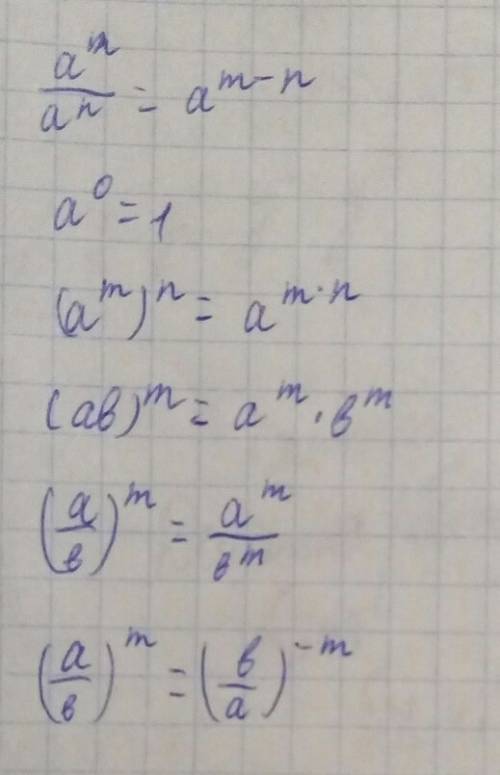 a^m / a^n = a^{m-n}
a^0 = 1
(a^m)^n = a^{m·n}
(aв)^m = a^m · в^m
(a/в)^m = a^m / в^m
(a/в)^m = (в/a)^{-m}